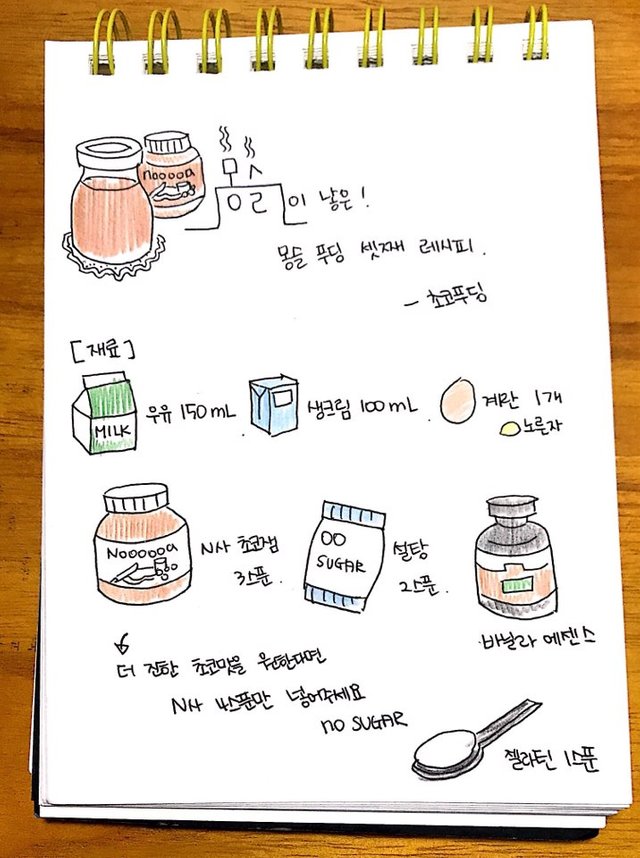 Nooooa
ㅁㅅ
ㅇㄹ이 낳은!
몽슬 푸딩 셋째 레시피.
- 초코푸딩
[재료]
MILK
우유 150mL.
생크림 100mL.
계란 1개
노른자
Noooooa
N사 초코잼
3스푼.
OO
SUGAR
설탕
2스푼.
바닐라 에센스
더 진한 초코맛을 원한다면
N사 4스푼만 넣어주세요
NO SUGAR
젤라틴 1스푼